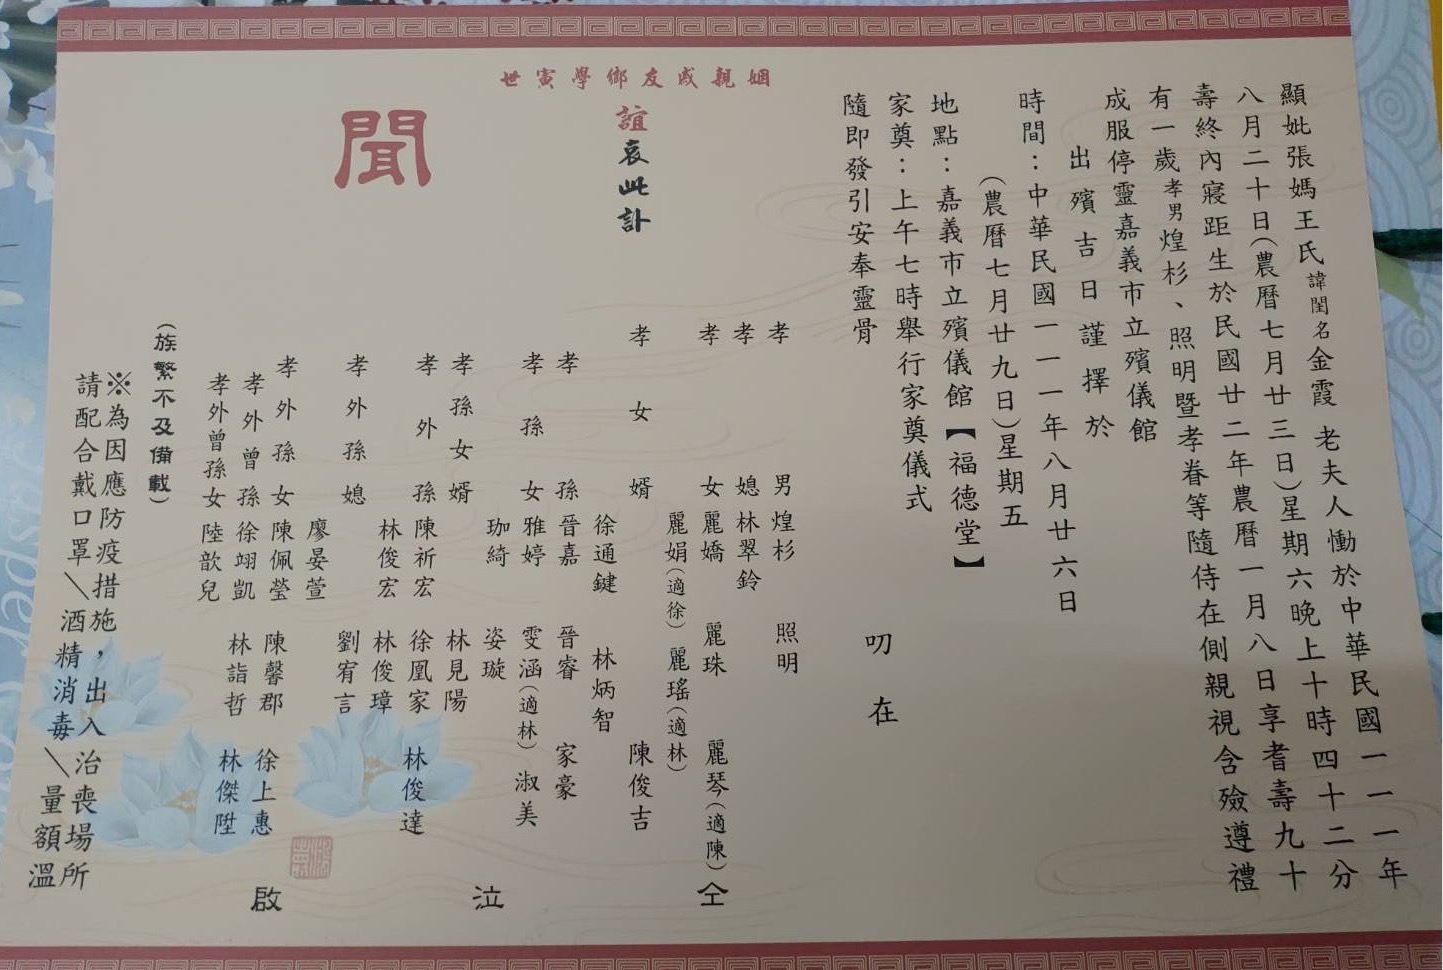 顯妣張媽王氏諱閨名金霞 老夫人慟於中華民國一一一年
八月二十日(農曆七月廿三日)星期六晚上十時四十二分
壽終內寢距生於民國廿二年農曆一月八日享耆壽九十
有一歲孝男煌杉、照明暨孝眷等隨侍在側親視含殮遵禮
成服停靈嘉義市立殯儀館
出殯吉日謹擇於
時間：中華民國一一一年八月廿六日
(農曆七月廿九日)星期五
地點：嘉義市立殯儀館【福德堂】
家奠：上午七時舉行家奠儀式
隨即發引安奉靈骨
叨在
姻親戚友鄉學寅世
誼哀此訃
聞
孝男 煌杉 照明
孝媳 林翠鈴
孝女 麗嬌 麗珠 麗琴(適陳)
麗娟(適徐) 麗瑤(適林)
孝女婿 陳俊吉
徐通鍵 林炳智
孝孫 晉嘉 晉睿 家豪
孝孫女 雅婷 雯涵(適林) 淑美
珈綺 姿璇
孝孫女婿 林見陽
孝外孫 陳祈宏 徐凰家 林俊達
林俊宏 林俊璋
孝外孫媳 劉宥言
廖晏萱
孝外孫女 陳佩瑩 陳馨郡 徐上惠
孝外曾孫 徐翊凱 林詣哲 林傑陞
孝外曾孫女 陸歆兒
仝
泣
啟
(族繁不及備載)
※為因應防疫措施，出入治喪場所
請配合戴口罩＼酒精消毒＼量額溫